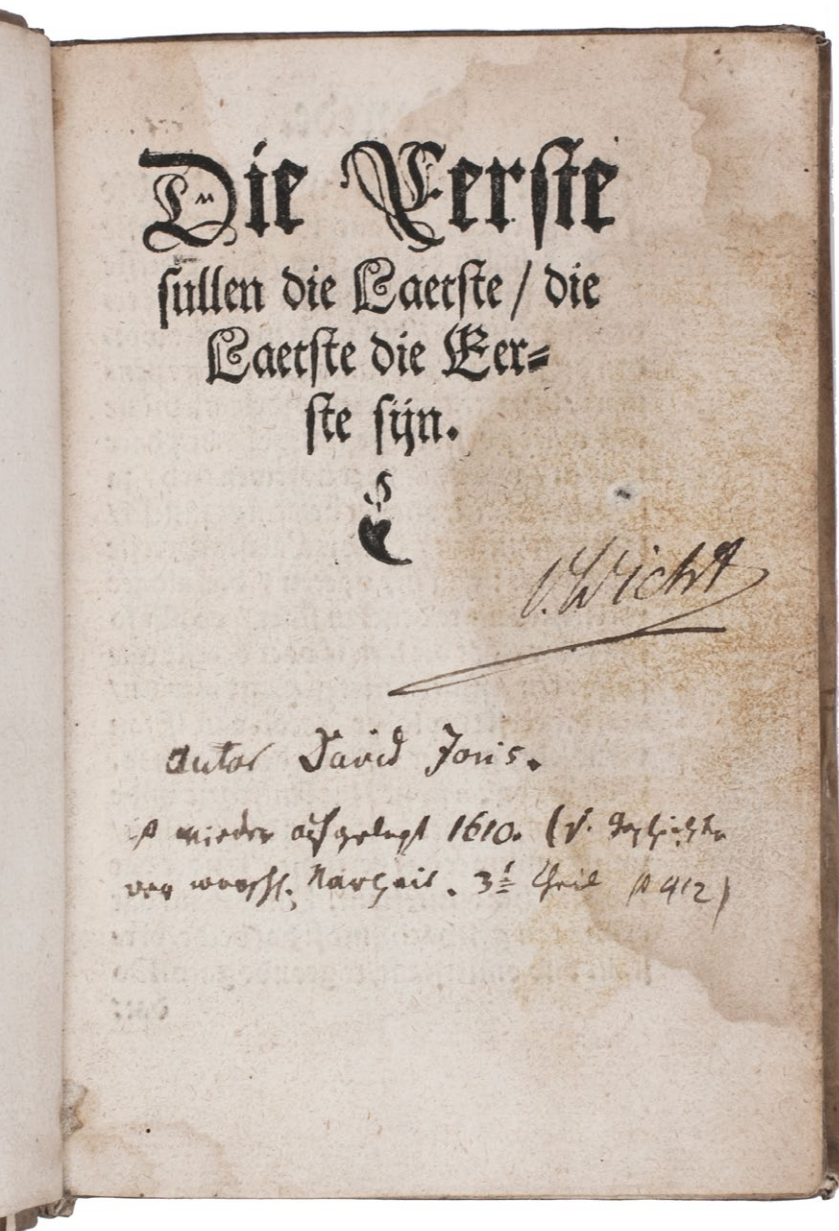 Die Eerste
sullen die Laetste / die
Laetste die Eer=
ste sijn.
v. Wicht
autor David Joris.
ist wieder aufgelegt 1610. (v. Geschichte
der menschl. Narrheit. 3t Theil p 412)